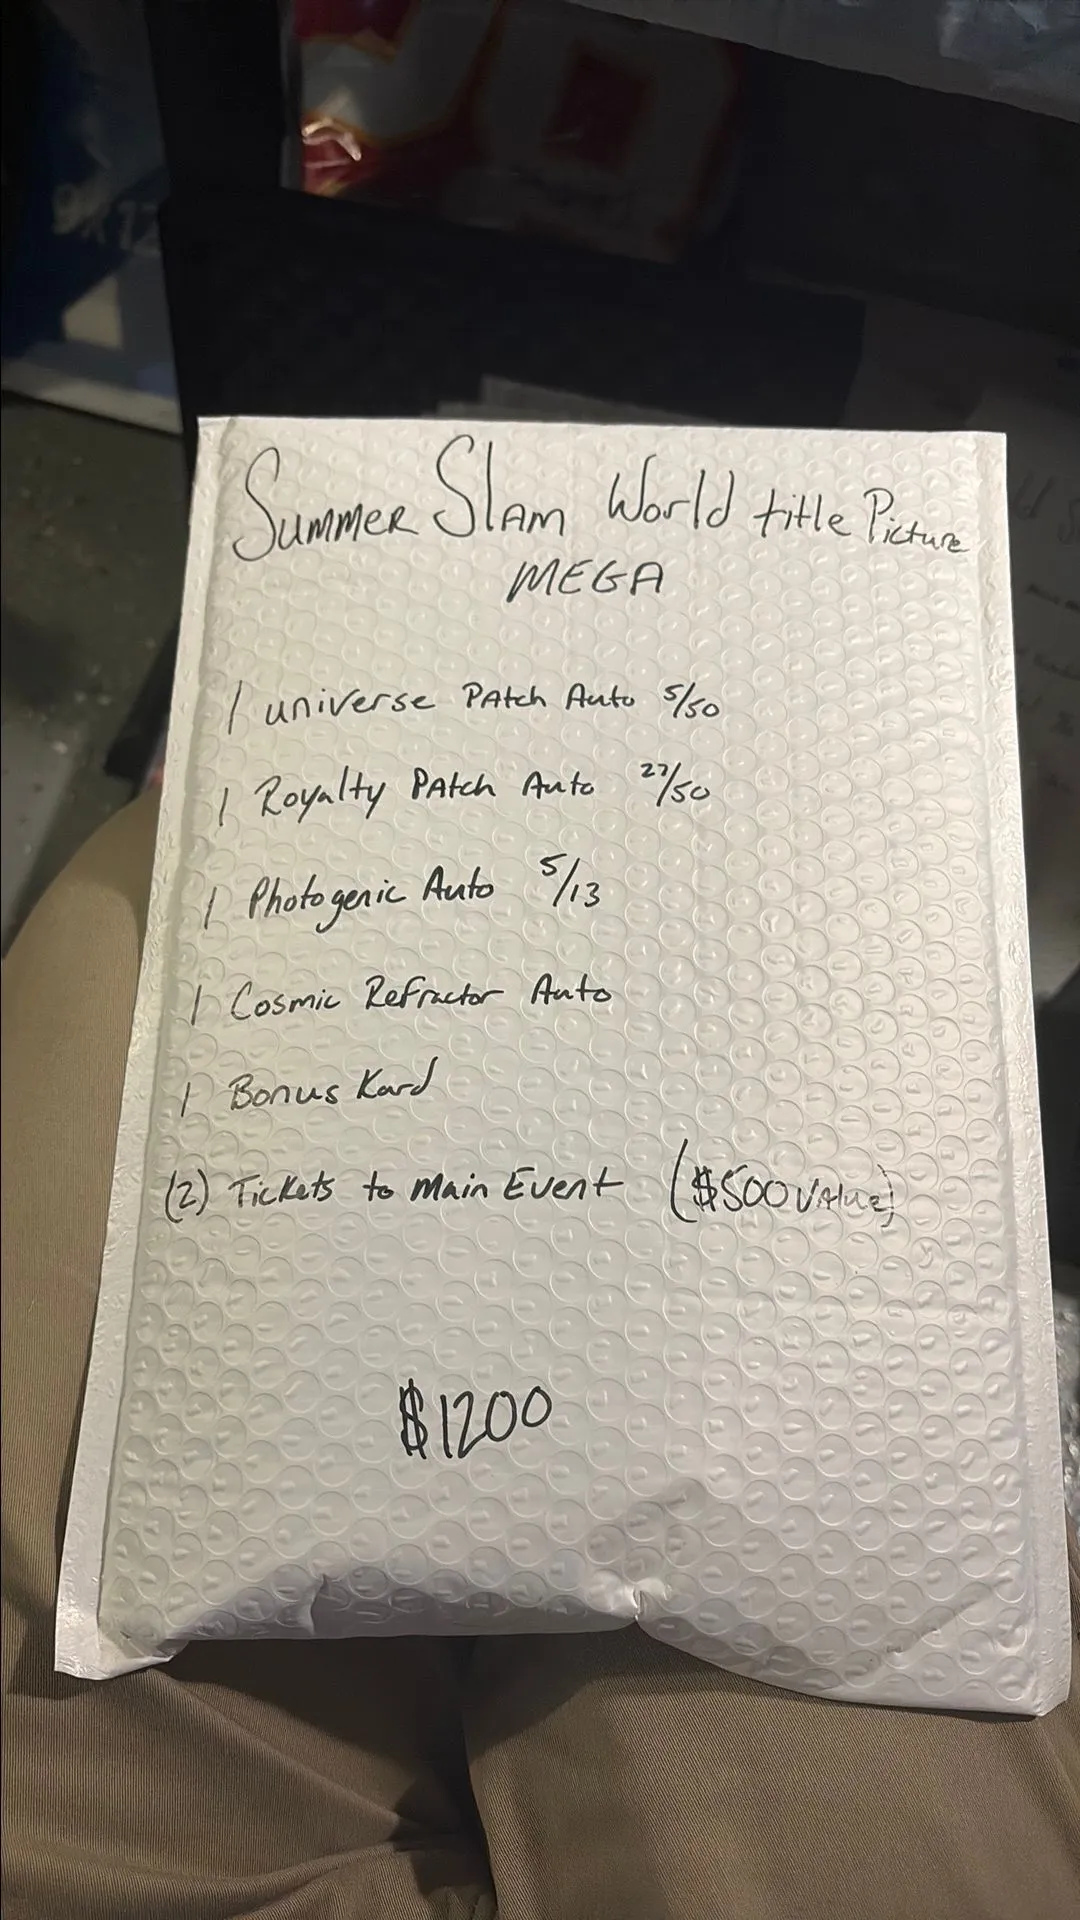 9X12
Summer Slam World title Picture
MEGA
1 universe Patch Auto 5/50
1 Royalty Patch Auto 27/50
1 Photogenic Auto 5/13
1 Cosmic Refractor Auto
1 Bonus Kard
(2) Tickets to Main Event ($500 Value)
$1200